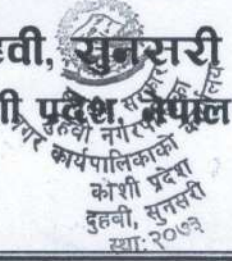 हवी, सुनसरी
शी प्रदेश, नेपाल
दुहवी नगरपा
नगर कार्यपालिकाको
कोशी प्रदेश
दुहवी, सुनसरी
स्था: २०७३